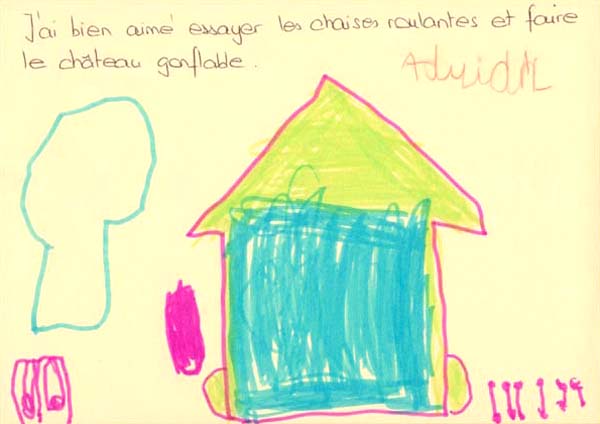 J'ai bien aimé essayer les chaises roulantes et faire
le château gonflable.